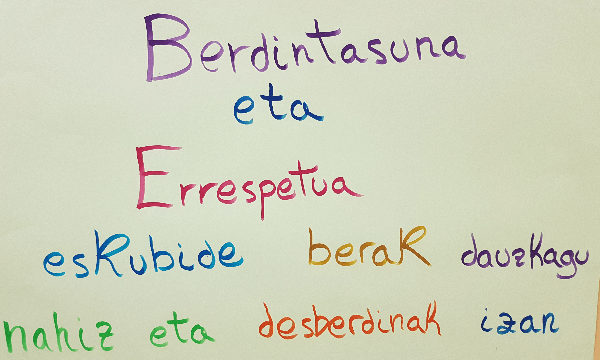 Berdintasuna
eta
Errespetua
eskubide berak dauzkagu
nahiz eta desberdinak izan